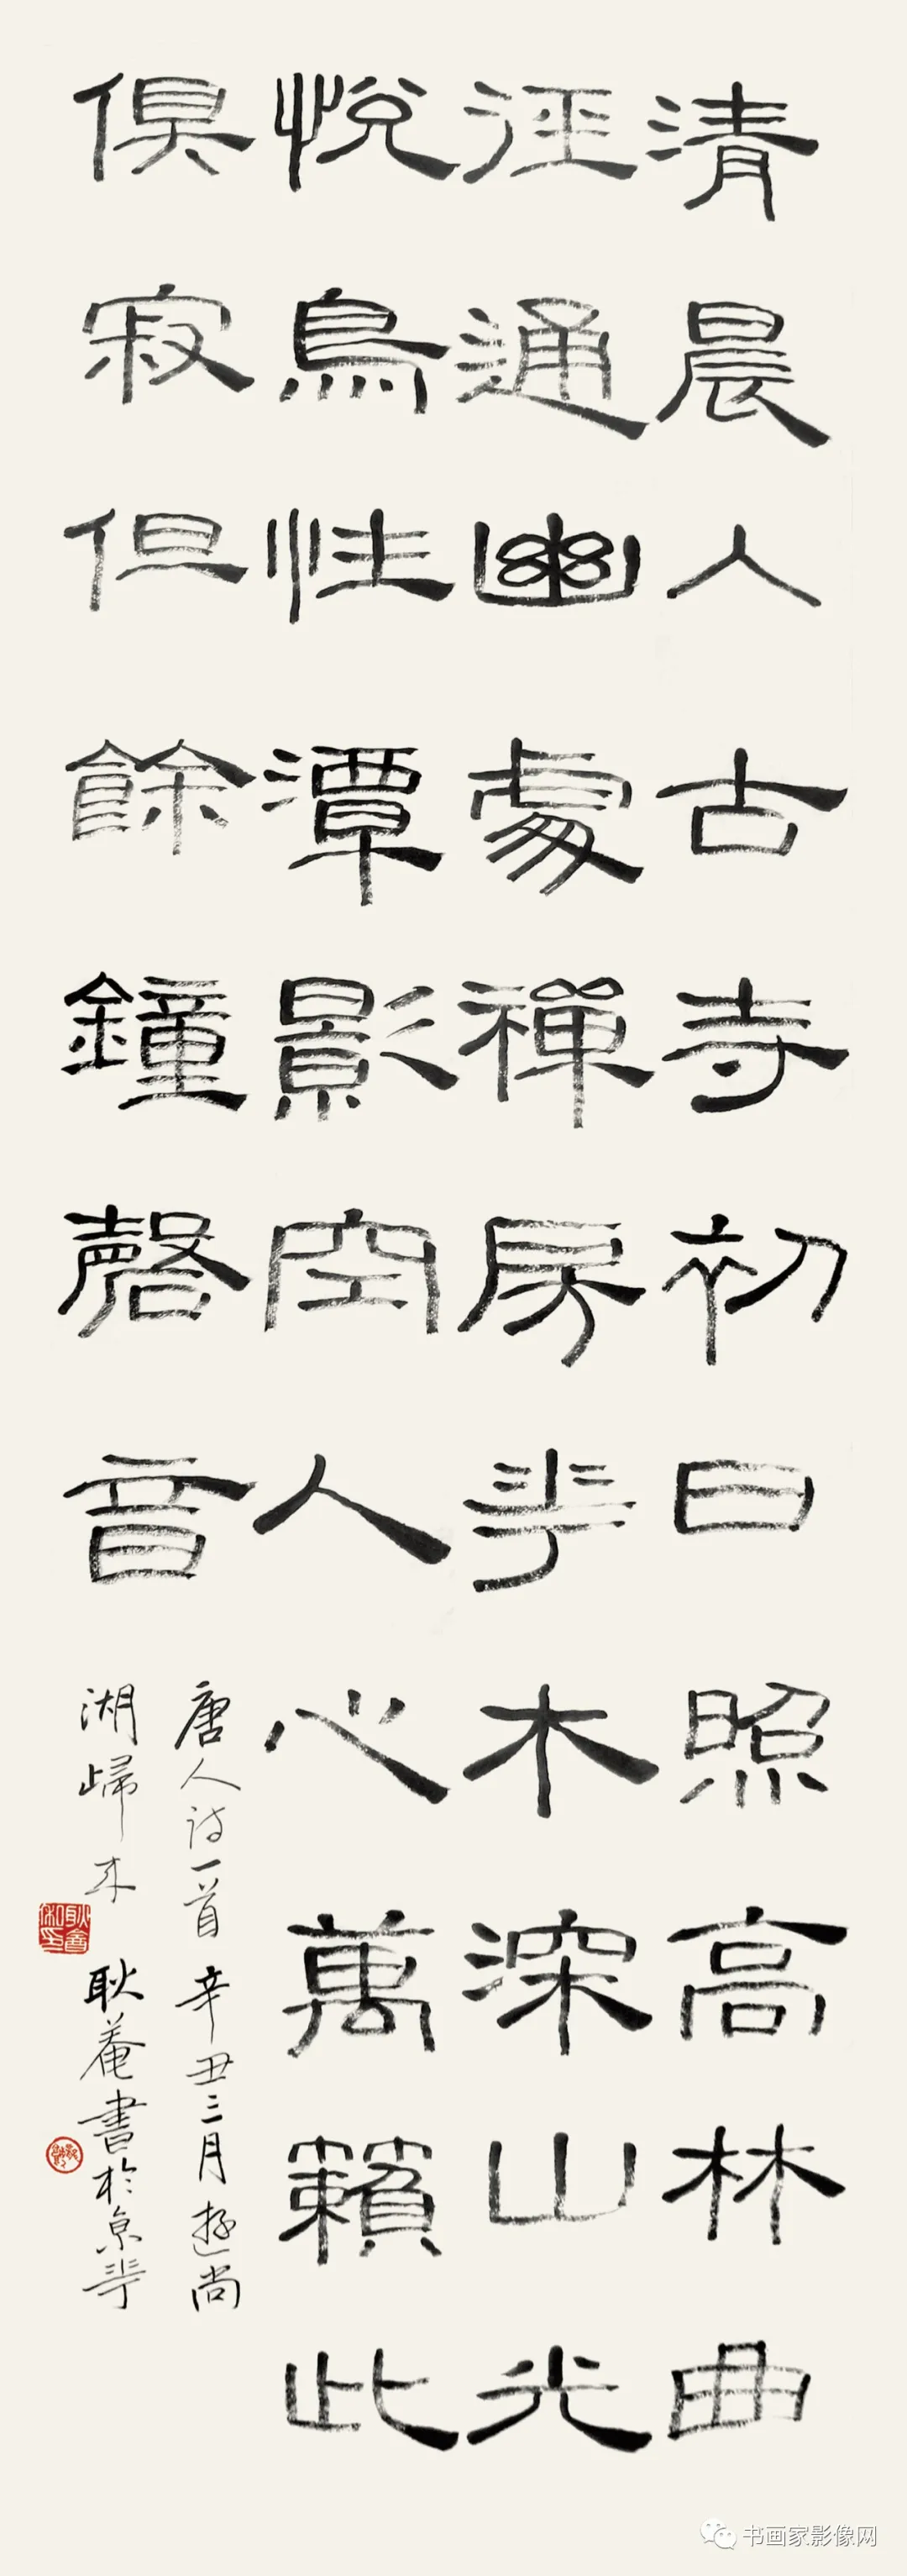 清晨入古寺初日照高林曲
徑通幽處禪房華木深山光
悅鳥性潭影空人心萬籟此
俱寂但餘鐘磬音
唐人詩一首 辛丑三月遊尚
湖歸來 耿菴書於京華
书画家影像网